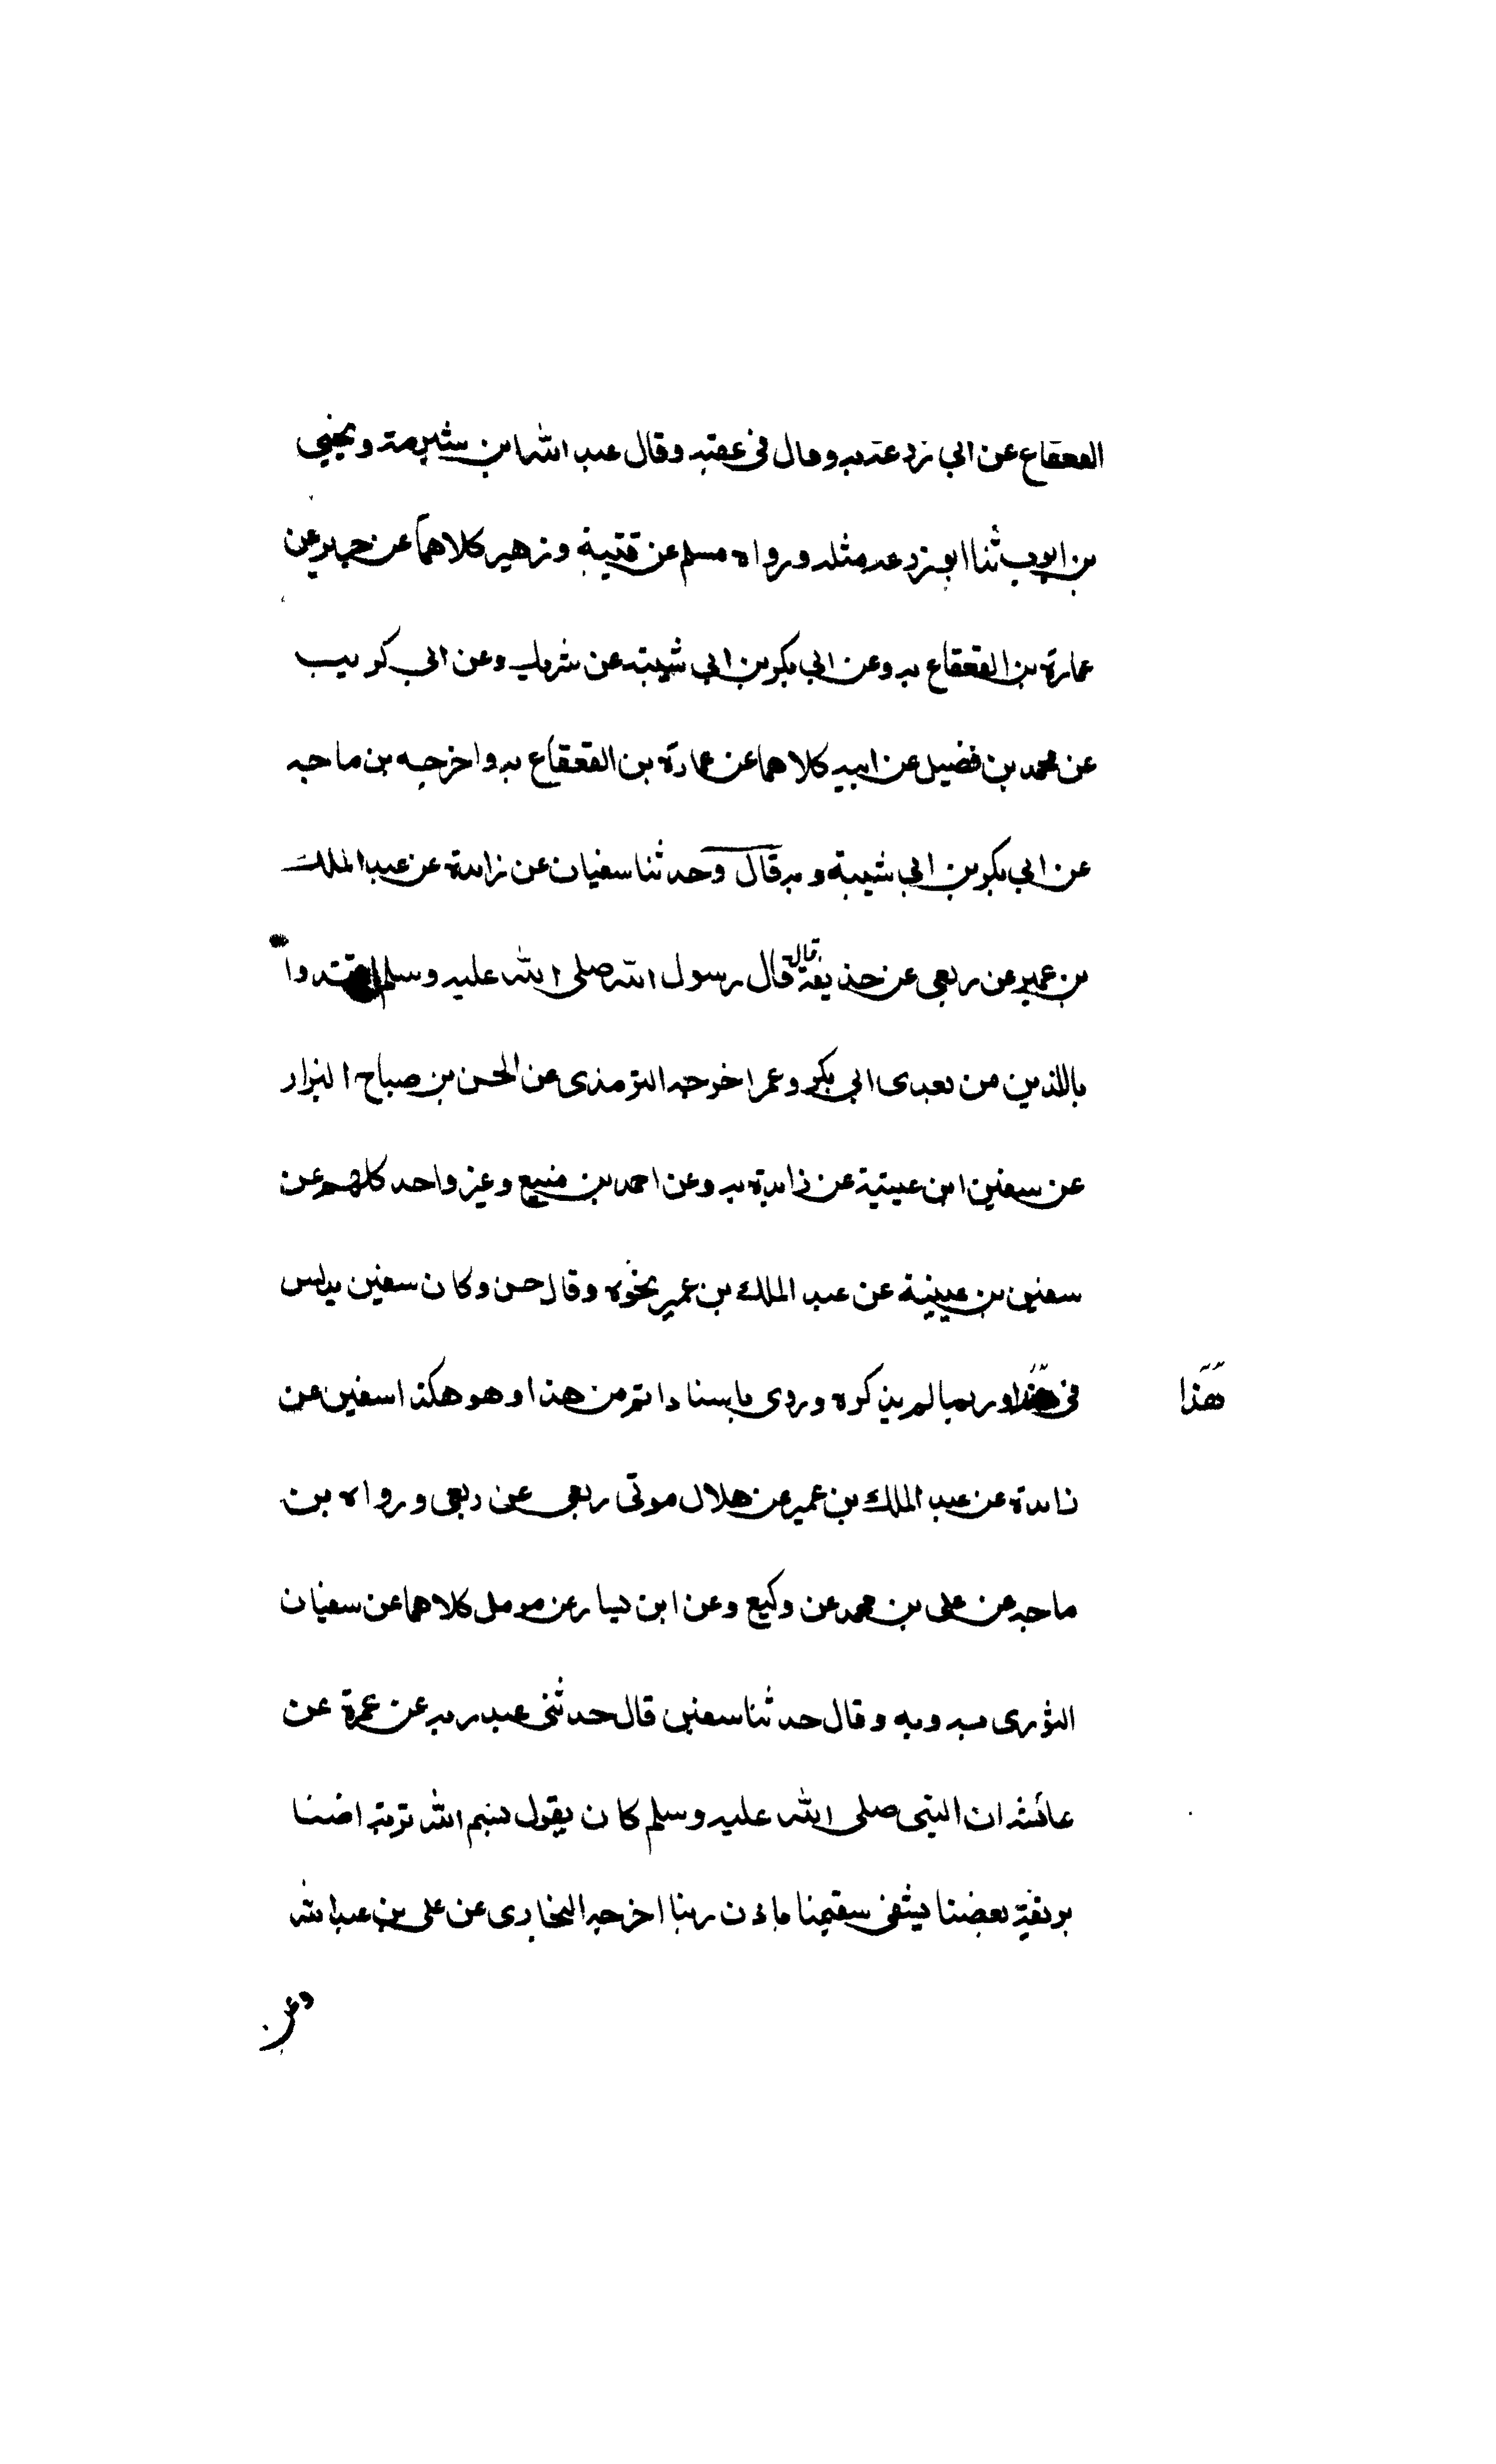 القعقاع عن ابي زرعة به وقال في عقبه وقال عبد الله ابن شبرمة ويحيى
بن ايوب ثنا ابو زرعه مثله ورواه مسلم عن قتيبة وزهير كلاهما عن جرير عن
عمارة بن القعقاع به وعن ابي بكر بن ابي شيبته عن شريك وعن ابي كريب
عن محمد بن فضيل عن ابيه كلاهما عن عمارة بن القعقاع به واخرجه بن ماجه
عن ابي بكر بن ابي شيبة وبه قال وحدثنا سفيان عن زايدة عن عبد الملك
بن عمير عن ربعي عن حذيفة قال قال رسول الله صلى الله عليه وسلم اقتدوا
باللذين من بعدى ابي بكر وعمر اخرجه الترمذى عن الحسن بن صباح البزار
عن سفين ابن عيينة عن زايدة به وعن احمد بن منيع وغير واحد كلهم عن
سفين بن عيينة عن عبد الملك بن عمير نحوه وقال حسن وكان سفين يدلس
في هذا وربما لم يذكره وروى باسناد اتم من هذا وهو هكذا سفين عن
هذا
زايدة عن عبد الملك بن عمير عن هلال مولى ربعى عن ربعى ورواه بن
ماجه عن على بن محمد عن وكيع وعن ابن بشار عن مومل كلاهما عن سفيان
الثورى به وبه وقال حدثنا سفين قال حدثنى عبد ربه عن عمرة عن
عائشه ان النبى صلى الله عليه وسلم كان يقول بسم الله تربة ارضنا
بريقة بعضنا يشفى سقيمنا باذن ربنا اخرجه البخارى عن على بن عبد الله
وعن